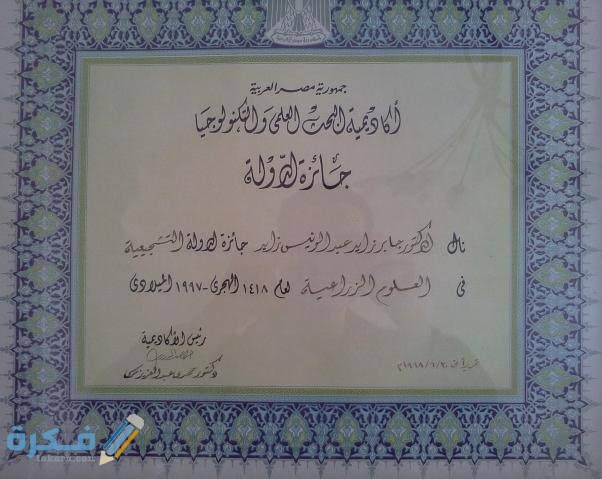 جمهورية مصر العربية
أكاديمية البحث العلمى والتكنولوجيا
جائزة الدولة
نال الدكتور جابر زايد عبد الونيس زايد جائزة الدولة التشجيعية
فى العلوم الزراعية لعام ١٤١٨ الهجرى - ١٩٩٧ الميلادى
رئيس الأكاديمية
دكتور
فكرة
fekera.com